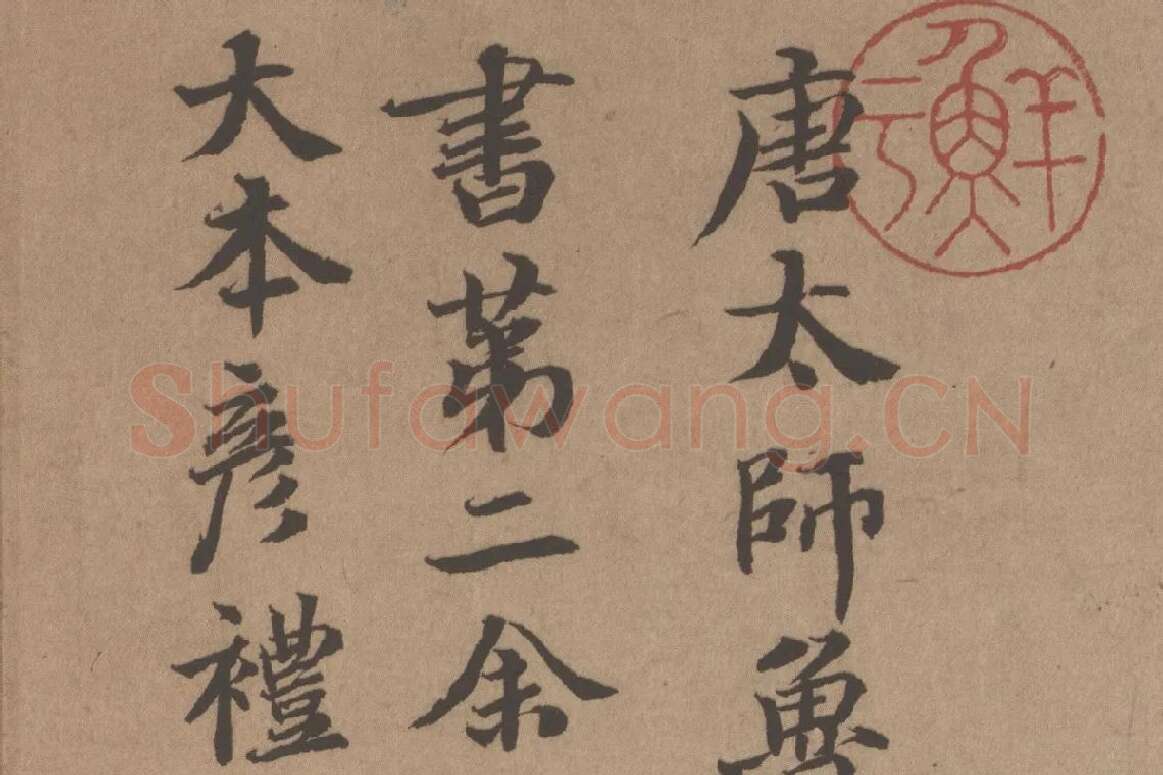 唐太師魯
書第二余
大本彥禮
鮮于
Shufawang.CN